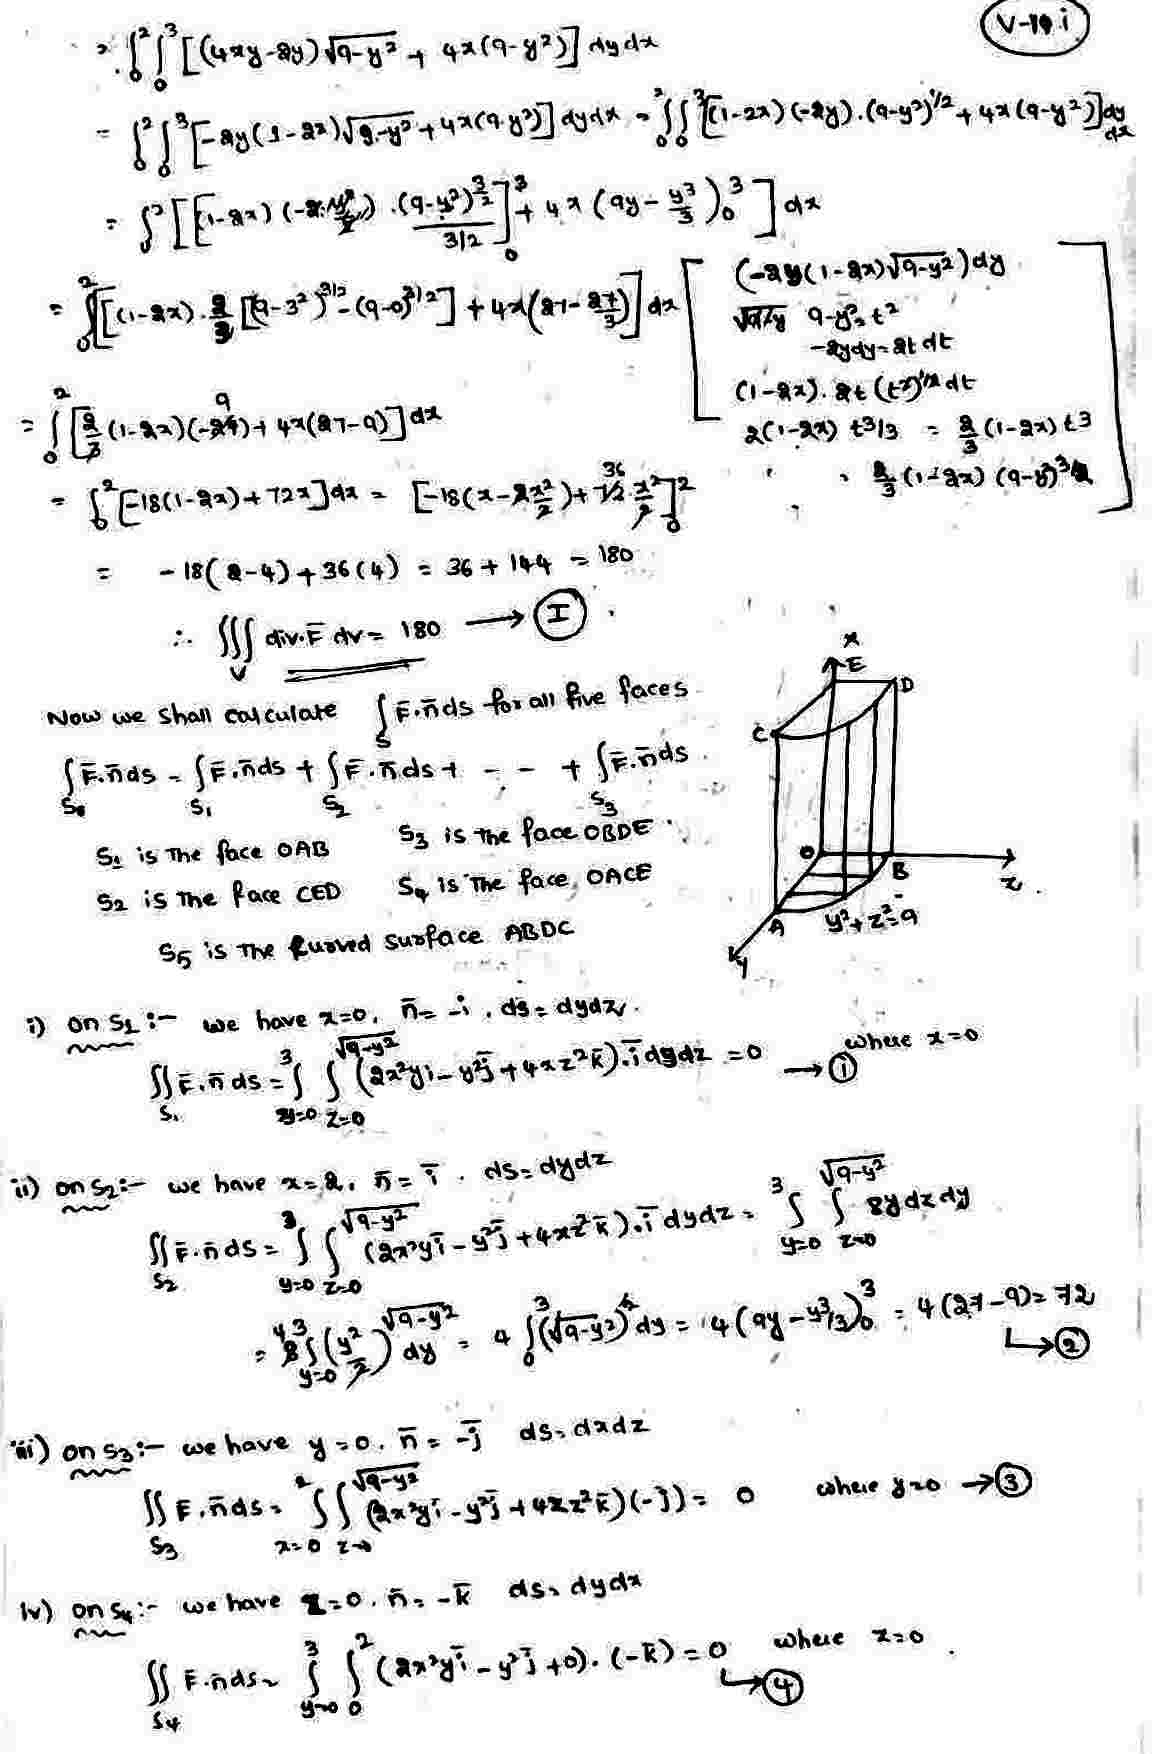 V-19 i
= ∫₀² ∫₀³ [(4xy-2y)√9-y² + 4x(9-y²)] dy dx
= ∫₀² ∫₀³ [-2y(1-2x)√9-y² + 4x(9-y²)] dy dx = ∫₀² ∫₀³ [(1-2x)(-2y).(9-y²)^1/2 + 4x(9-y²)] dy dx
= ∫₀² [[(1-2x) . (9-y²)^3/2 / 3/2]₀³ + 4x (9y - y³/3)₀³] dx
= ∫₀² [(1-2x). 2/3 [(9-3²)^3/2 - (9-0)^3/2] + 4x(27 - 27/3)] dx
(-2y(1-2x)√9-y²) dy
9-y² = t²
-2ydy = 2t dt
(1-2x). 2t (t²)^1/2 dt
2(1-2x) t³/3 = 2/3 (1-2x) t³
= 2/3 (1-2x) (9-y²)^3/2
= ∫₀² [2/3 (1-2x)(-27) + 4x(27-9)] dx
= ∫₀² [-18(1-2x) + 72x] dx = [-18(x - 2x²/2) + 72 . x²/2]₀²
= -18(2-4) + 36(4) = 36 + 144 = 180
∴ ∫∫∫_V div.F̄ dv = 180 → I
Now we shall calculate ∫_S F̄.n̄ds for all five faces
∫_S F̄.n̄ds = ∫_S₁ F̄.n̄ds + ∫_S₂ F̄.n̄ds + - - + ∫_S₃ F̄.n̄ds
S₁ is The face OAB S₃ is The face OBDE
S₂ is The face CED S₄ is The face OACE
S₅ is The Curved Surface ABDC
x
E
D
C
O
B
z
A
y²+z²=9
y
i) on S₁ :- we have x=0, n̄ = -i, ds = dydz
∫∫_S₁ F̄.n̄ ds = ∫_{y=0}^3 ∫_{z=0}^{√9-y²} (2x²yi - y²j̄ + 4xz²k̄).ī dydz = 0 where x=0 → ①
ii) on S₂ :- we have x=2, n̄ = ī. ds = dydz
∫∫_S₂ F̄.n̄ ds = ∫_{y=0}^3 ∫_{z=0}^{√9-y²} (2x²yī - y²j̄ + 4xz²k̄).ī dydz = ∫_{y=0}^3 ∫_{z=0}^{√9-y²} 8y dz dy
= 4 8 ∫_{y=0}^3 (y²/2)^{√9-y²} dy = 4 ∫₀³ (√9-y²)² dy = 4 (9y - y³/3)₀³ = 4(27-9) = 72 → ②
iii) on S₃ :- we have y=0. n̄ = -j̄ ds = dxdz
∫∫_S₃ F.n̄ds = ∫_{x=0}^2 ∫_{z=0}^{√9-y²} (2x²yi - y²j̄ + 4xz²k̄)(-j) = 0 where y=0 → ③
iv) on S₄ :- we have z=0. n̄ = -k̄ ds = dydx
∫∫_S₄ F.n̄ds = ∫_{y=0}^3 ∫₀² (2x²yī - y²j̄ + 0).(-k̄) = 0 where z=0 → ④